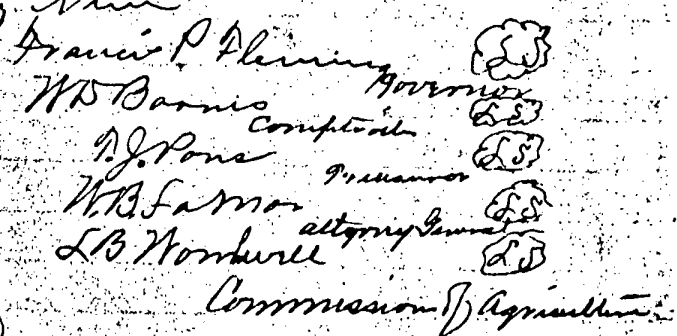 Nine
Francis P. Fleming L S
Governor
W D Barnes L S
Comptroller
F. J. Pons L S
Treasurer
W. B. Lamar L S
attorney General
L B Wombwell L S
Commission of Agriculture